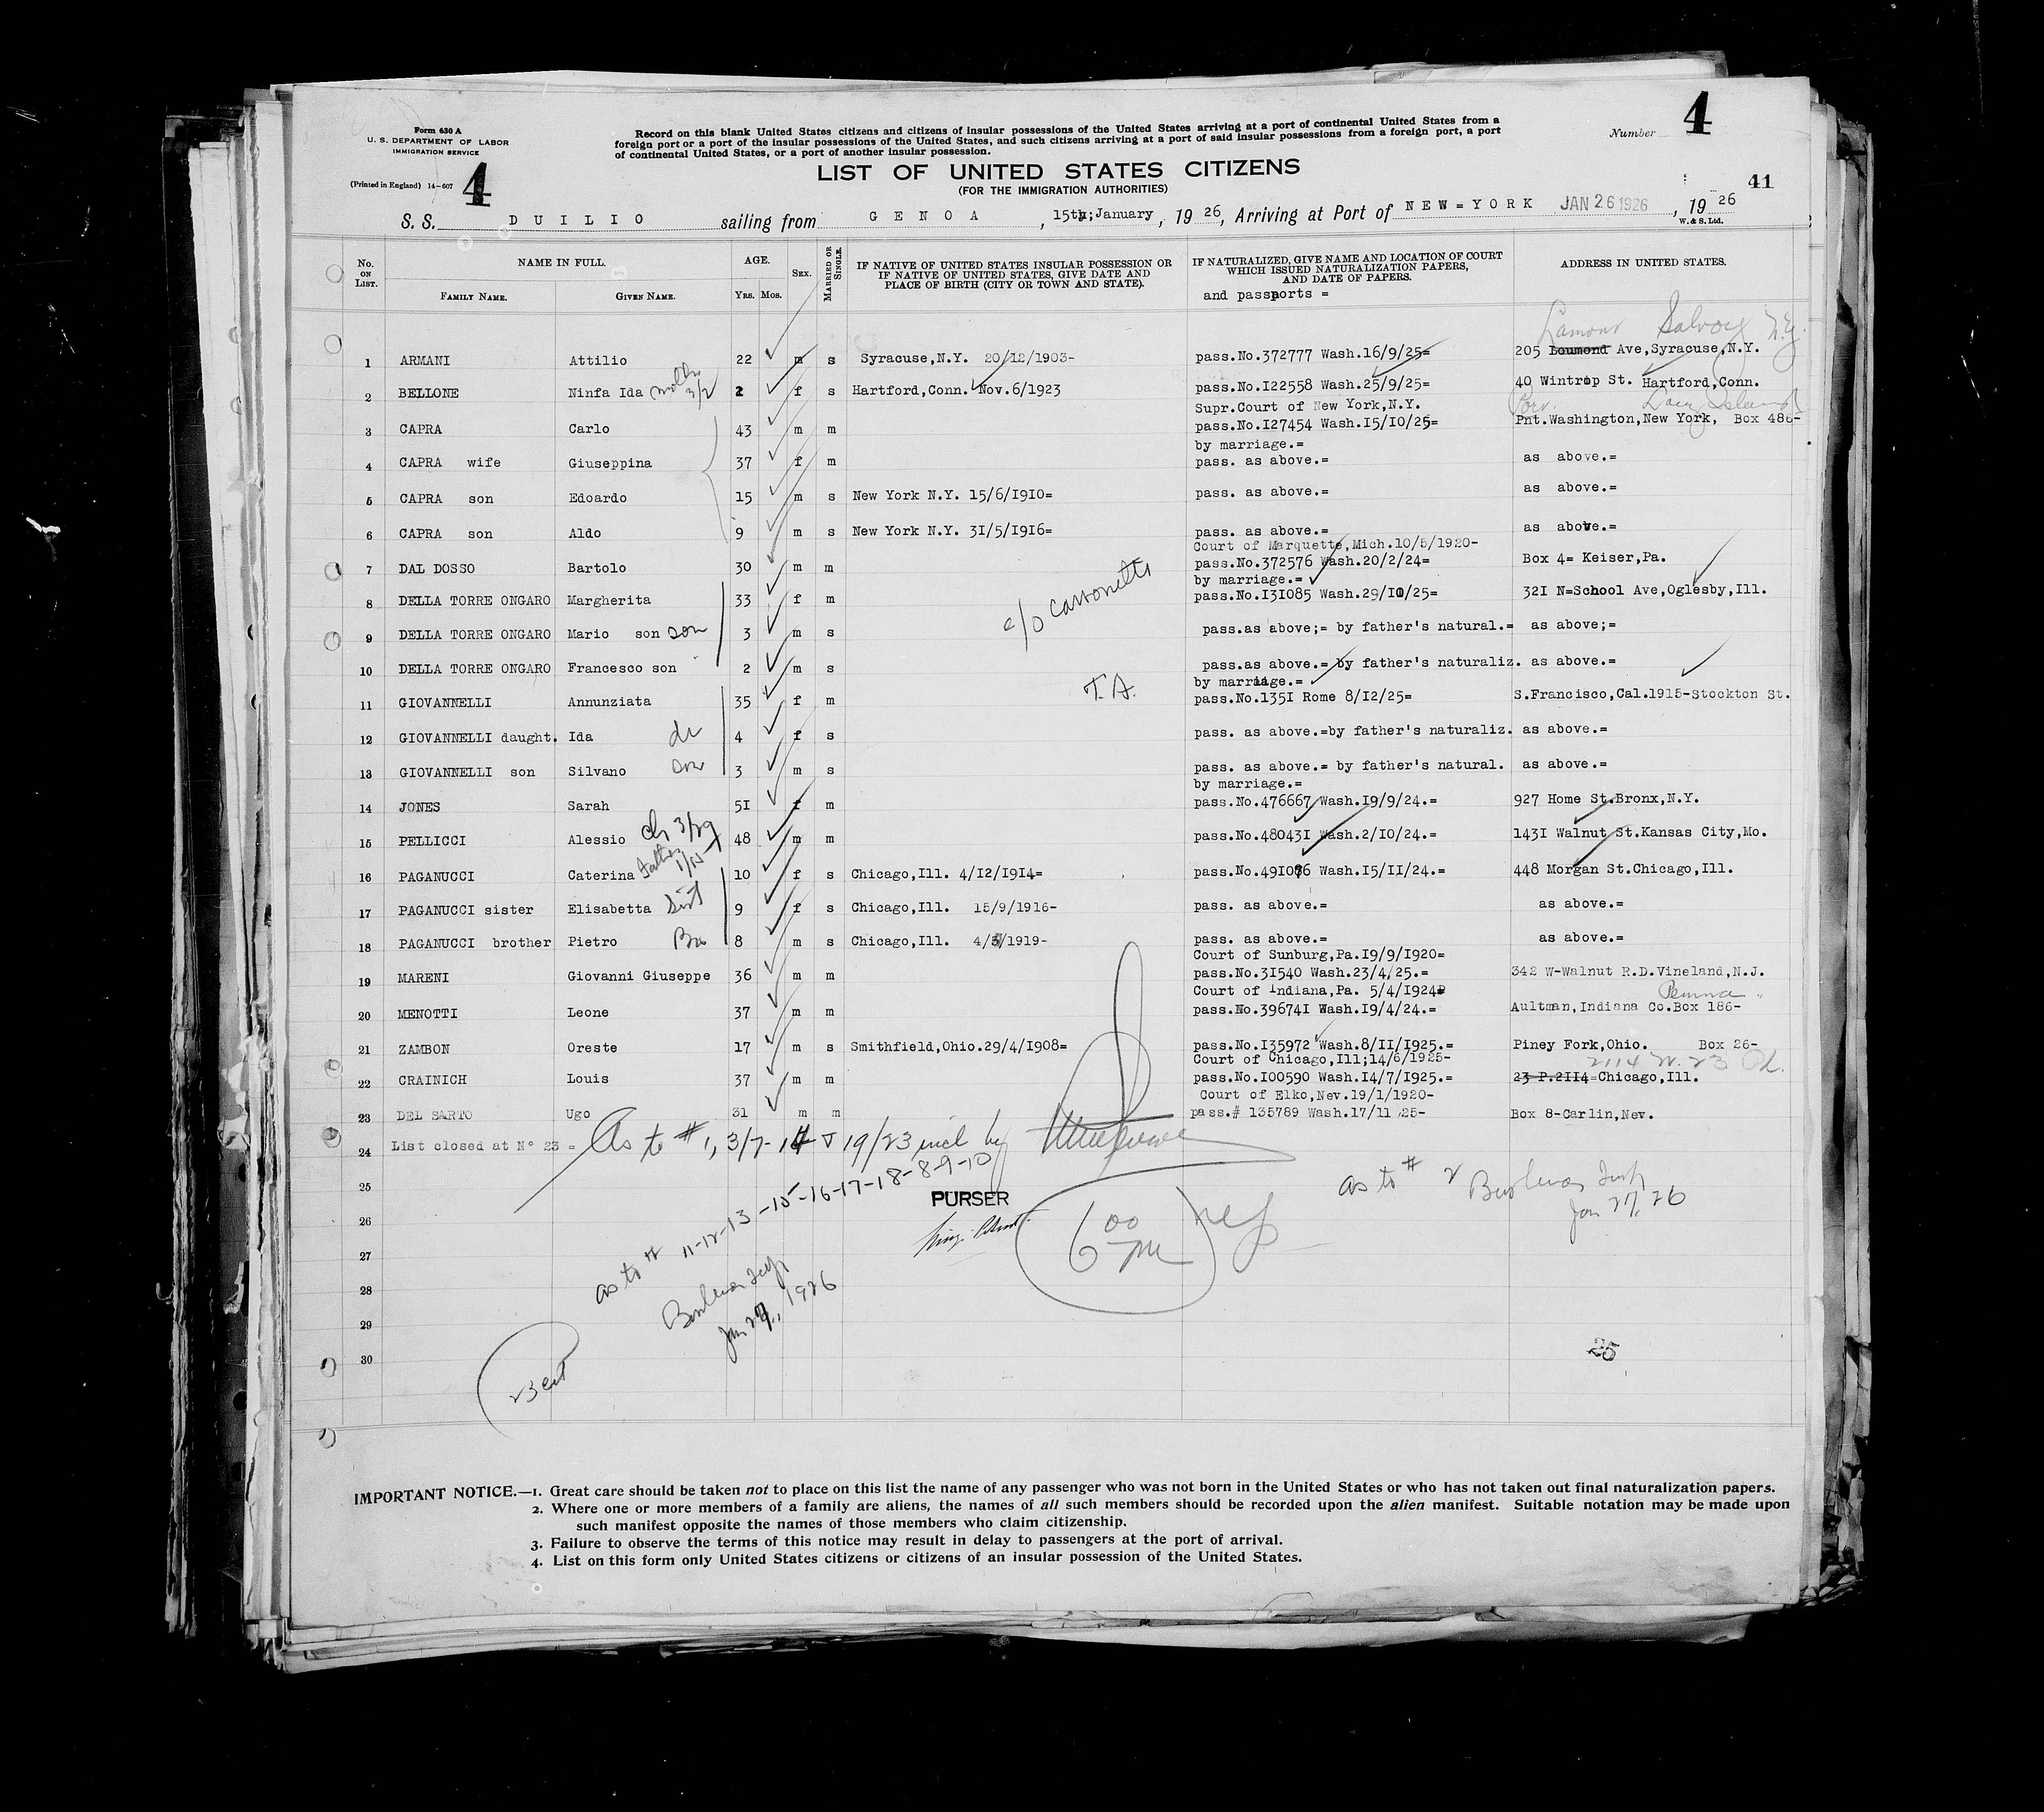 Form 630 A
U. S. DEPARTMENT OF LABOR
IMMIGRATION SERVICE
(Printed in England) 14-607
4
Record on this blank United States citizens and citizens of insular possessions of the United States arriving at a port of continental United States from a
foreign port or a port of the insular possessions of the United States, and such citizens arriving at a port of said insular possessions from a foreign port, a port
of continental United States, or a port of another insular possession.
Number 4
LIST OF UNITED STATES CITIZENS
(FOR THE IMMIGRATION AUTHORITIES)
41
S. S. DUILIO sailing from GENOA, 15th; January, 1926, Arriving at Port of NEW=YORK JAN 26 1926, 1926
W. & S. Ltd.
No. ON LIST. NAME IN FULL. AGE. SEX. MARRIED OR SINGLE. IF NATIVE OF UNITED STATES INSULAR POSSESSION OR IF NATIVE OF UNITED STATES, GIVE DATE AND PLACE OF BIRTH (CITY OR TOWN AND STATE). IF NATURALIZED, GIVE NAME AND LOCATION OF COURT WHICH ISSUED NATURALIZATION PAPERS, AND DATE OF PAPERS. ADDRESS IN UNITED STATES.
FAMILY NAME. GIVEN NAME. YRS. MOS. and passports =
Lamont Solvay N.Y.
1 ARMANI Attilio 22 m s Syracuse,N.Y. 20/12/1903- pass.No.372777 Wash.16/9/25= 205 Loumond Ave,Syracuse,N.Y.
2 BELLONE Ninfa Ida 2 f s Hartford,Conn. Nov.6/1923 pass.No.I22558 Wash.25/9/25= 40 Wintrop St. Hartford,Conn.
Supr.Court of New York,N.Y. Port Long Island
3 CAPRA Carlo 43 m m pass.No.I27454 Wash.I5/IO/25= Pnt.Washington,New York, Box 486-
by marriage.=
4 CAPRA wife Giuseppina 37 f m pass. as above.= as above.=
5 CAPRA son Edoardo 15 m s New York N.Y. 15/6/I9IO= pass. as above.= as above.=
6 CAPRA son Aldo 9 m s New York N.Y. 3I/5/I9I6= pass. as above.= as above.=
Court of Marquette,Mich.10/5/1920-
7 DAL DOSSO Bartolo 30 m m pass.No.372576 Wash.20/2/24= Box 4= Keiser,Pa.
by marriage.=
8 DELLA TORRE ONGARO Margherita 33 f m pass.No.I3I085 Wash.29/10/25= 32I N=School Ave,Oglesby,Ill.
c/o
9 DELLA TORRE ONGARO Mario son son 3 m s pass.as above;= by father's natural.= as above;=
10 DELLA TORRE ONGARO Francesco son 2 m s pass.as above.= by father's naturaliz. as above.=
by marriage.=
11 GIOVANNELLI Annunziata 35 f m T.A. pass.No.135I Rome 8/I2/25= S.Francisco,Cal.1915-Stockton St.
12 GIOVANNELLI daught. Ida 4 f s pass. as above.=by father's naturaliz. as above.=
13 GIOVANNELLI son Silvano son 3 m s pass. as above.= by father's natural. as above.=
by marriage.=
14 JONES Sarah 5I f m pass.No.476667 Wash.I9/9/24.= 927 Home St.Bronx,N.Y.
15 PELLICCI Alessio 48 m m pass.No.48043I Wash.2/IO/24.= 143I Walnut St.Kansas City,Mo.
16 PAGANUCCI Caterina 10 f s Chicago,Ill. 4/I2/I9I4= pass.No.49I076 Wash.I5/II/24.= 448 Morgan St.Chicago,Ill.
17 PAGANUCCI sister Elisabetta Sist 9 f s Chicago,Ill. 15/9/1916- pass. as above.= as above.=
18 PAGANUCCI brother Pietro Bro 8 m s Chicago,Ill. 4/3/1919- pass. as above.= as above.=
Court of Sunburg,Pa.I9/9/I920=
19 MARENI Giovanni Giuseppe 36 m m pass.No.3I540 Wash.23/4/25.= 342 W-Walnut R.D.Vineland,N.J.
Court of Indiana,Pa. 5/4/I924= Penna
20 MENOTTI Leone 37 m m pass.No.39674I Wash.I9/4/24.= Aultman,Indiana Co.Box 186-
21 ZAMBON Oreste 17 m s Smithfield,Ohio.29/4/I908= pass.No.I35972 Wash.8/II/I925.= Piney Fork,Ohio. Box 26-
Court of Chicago,Ill;14/6/1925- 2114 W. 23 Pl.
22 CRAINICH Louis 37 m m pass.No.I00590 Wash.I4/7/I925.= 23 P.2II4=Chicago,Ill.
Court of Elko,Nev.19/1/1920-
23 DEL SARTO Ugo 31 m m pass.# 135789 Wash.17/11/25- Box 8-Carlin,Nev.
24 List closed at N° 23 = As to #1, 3/7-14 & 19/23 incl by
25
as to # 11-12-13-15-16-17-18-8-9-10
as to # 2
Jan 27, 26
PURSER
26
6 00 PM
27
28
Jan 27, 1926
29
30
25
23
IMPORTANT NOTICE.—1. Great care should be taken not to place on this list the name of any passenger who was not born in the United States or who has not taken out final naturalization papers.
2. Where one or more members of a family are aliens, the names of all such members should be recorded upon the alien manifest. Suitable notation may be made upon
such manifest opposite the names of those members who claim citizenship.
3. Failure to observe the terms of this notice may result in delay to passengers at the port of arrival.
4. List on this form only United States citizens or citizens of an insular possession of the United States.